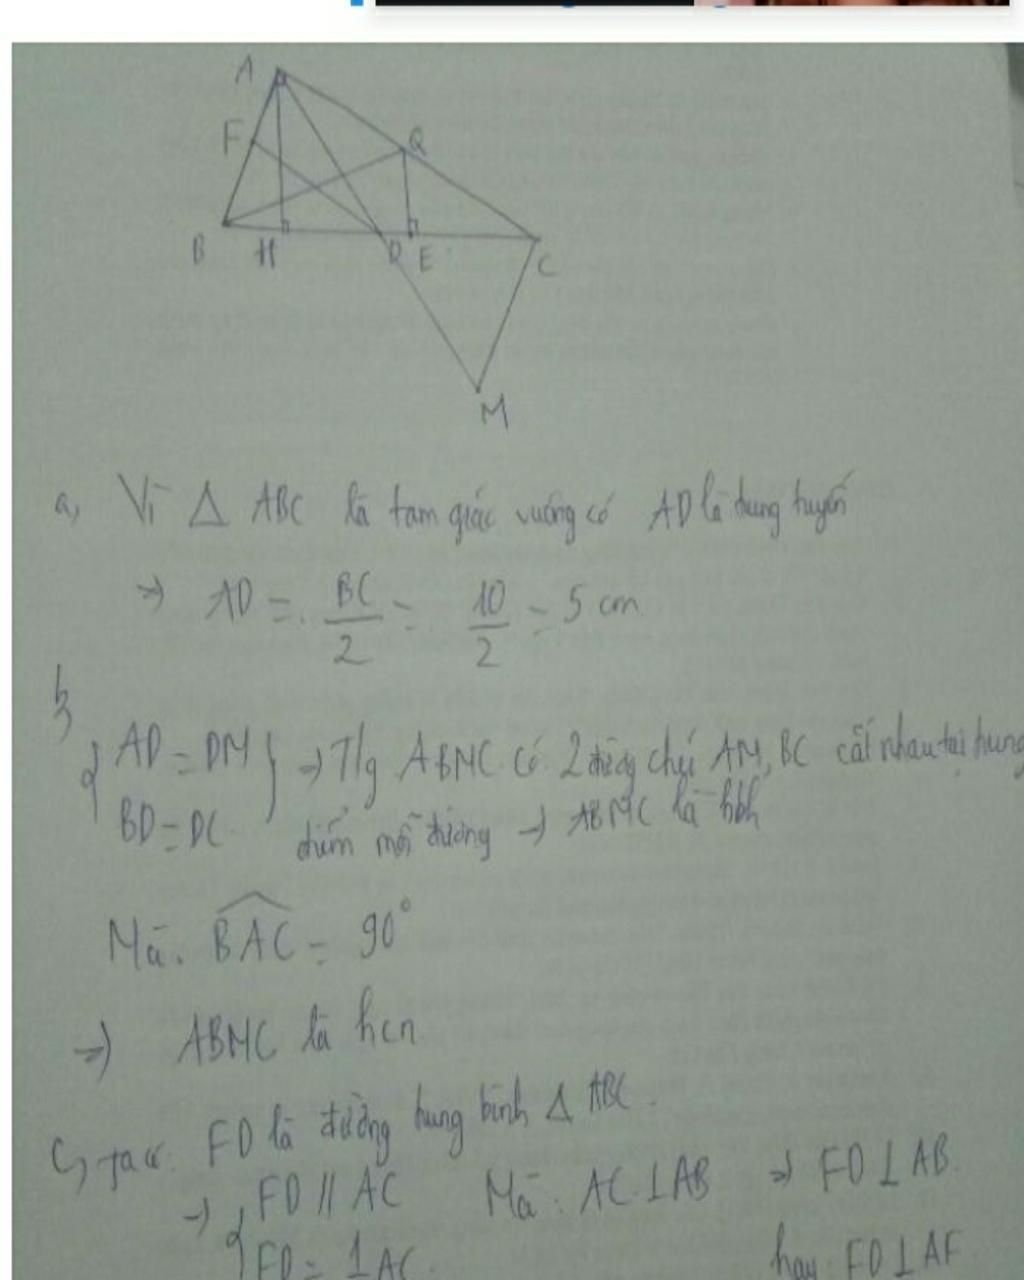 A
F
Q
B H D E C
M
a, Vì Δ ABC là tam giác vuông có AD là trung tuyến
=> AD = BC/2 = 10/2 = 5 cm
b,
{ AD = DM } => T/g ABMC có 2 đường chéo AM, BC cắt nhau tại trung
BD = DC điểm mỗi đường -> ABMC là hbh
Mà. BAC = 90°
=> ABMC là hcn
c, Ta có. FD là đường trung bình Δ ABC.
-> { FD // AC Mà : AC ⊥ AB => FD ⊥ AB.
FD = 1 AC. hay FD ⊥ AF